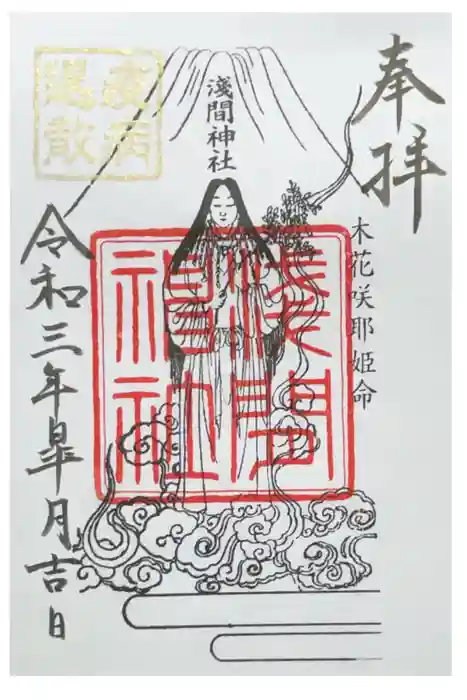 奉拝
木花咲耶姫命
淺間神社
淺間
神社
疫病
退散
令和三年皐月吉日